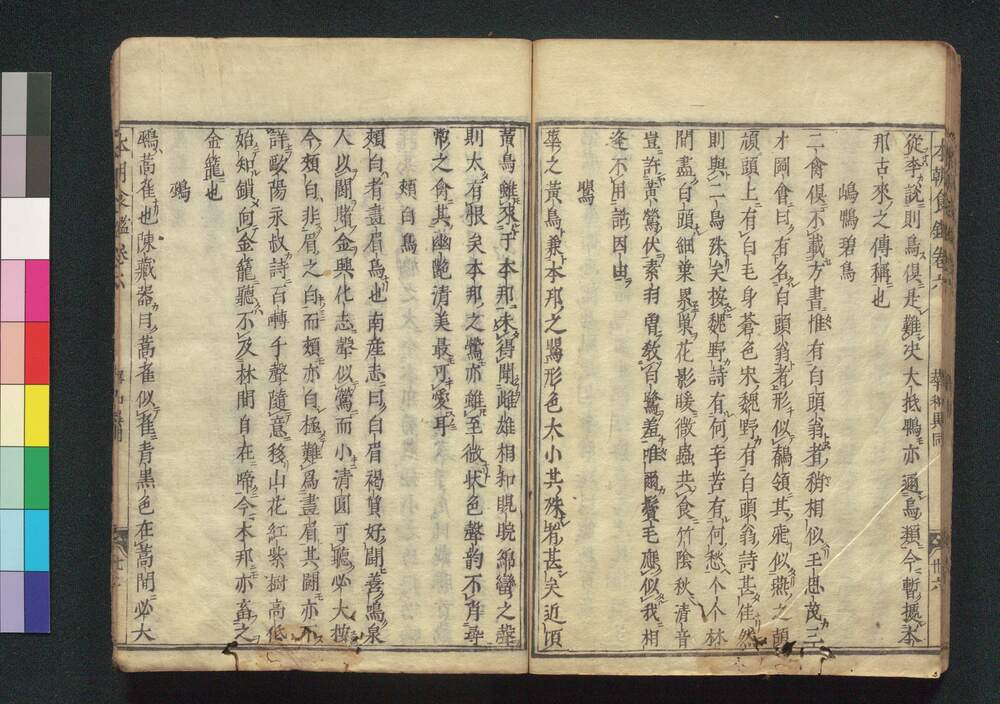 本朝食鑑卷六　華和異同　卅六
從李說則鳥俱是難決大抵鴨亦通鳥類今暫據本
那古來之傳稱也
鳲鴨碧鳥
二禽俱不載方書惟有白頭翁者稍相似王思茂三
才圖會曰有名白頭翁者形似鶺領其飛似燕之頡
頏頭上有白毛身蒼色宋魏野有白頭翁詩甚佳然
則與二鳥殊矣按魏野詩有何辛苦有何愁个个林
間盡白頭細葉累巢花影暖微蟲共食竹陰秋清音
豈許黃鶯伏素羽曾教白鷺羞唯爾鬢毛應似我相
逢不用話因由
鶯
華之黃鳥兼本邦之鶯形色大小其殊者甚矣近頃
黃鳥雖來于本邦未得聞雌雄相和睍睆綿蠻之聲
則太有恨矣本邦之鶯亦雖至微狀色聲韵不肖尋
常之禽其幽艷清美最可愛耳
頰白鳥
頰白者畫眉鳥也南產志曰白眉褐質好鬪善鳴泉
人以鬪賭金興化志聲似鶯而小清圓可聽必大按
今頰白非眉之白而頰亦白極難爲畫眉其鬪亦不
詳歐陽永叔詩百囀千聲隨意移山花紅紫樹高低
始知鎖向金籠聽不及林間自在啼今本邦亦畜之
金籠也
鵐
鵐蒿雀也陳藏器曰蒿雀似雀青黑色在蒿間必大